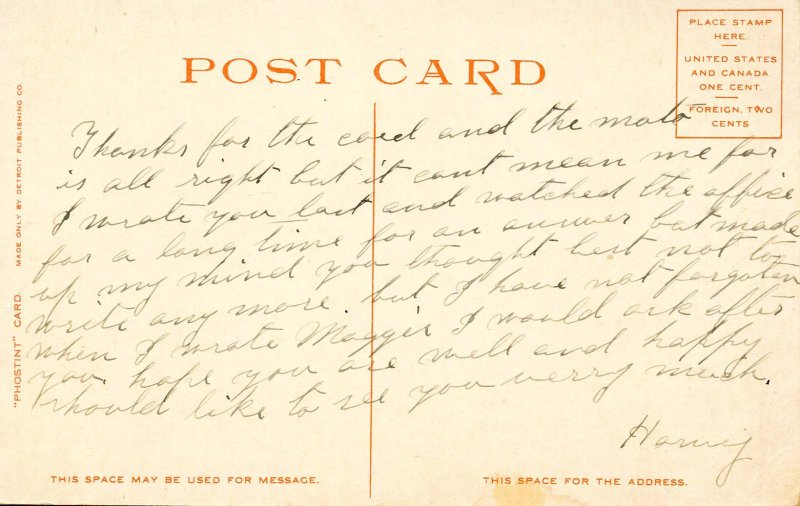 POST CARD
PLACE STAMP
HERE.
UNITED STATES
AND CANADA
ONE CENT.
FOREIGN, TWO
CENTS
MADE ONLY BY DETROIT PUBLISHING CO.
"PHOSTINT" CARD.
Thanks for the card and the moto
is all right but it cant mean me for
I wrote you last and watched the office
for a long time for an answer but made
up my mind you thought best not to
write any more. but I have not forgoten
when I wrote Maggie I would ask after
you. hope you are well and happy
should like to see you verry much.
THIS SPACE MAY BE USED FOR MESSAGE.
THIS SPACE FOR THE ADDRESS.